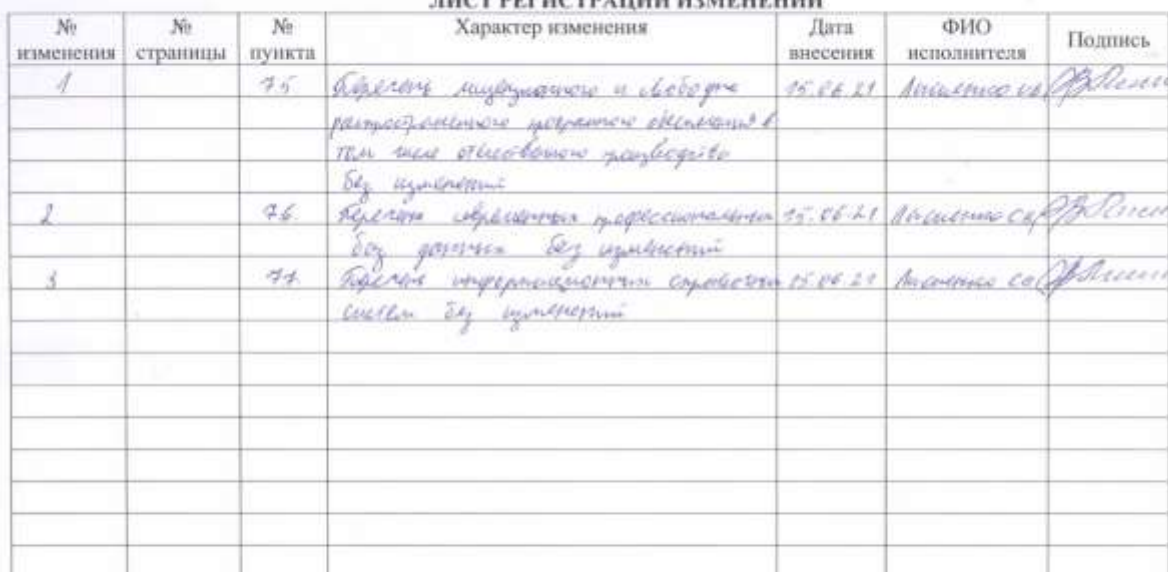 ЛИСТ РЕГИСТРАЦИИ ИЗМЕНЕНИЙ
№ изменения № страницы № пункта Характер изменения Дата внесения ФИО исполнителя Подпись
1 7.5 Перечень лицензионного и свободно 15.06.21
распространенного программного обеспечения в
том числе отечественного производства
без изменений
2 7.6. Перечень современных профессиональных 15.06.21
баз данных без изменений
3 7.7. Перечень информационных справочных 15.06.21
систем без изменений